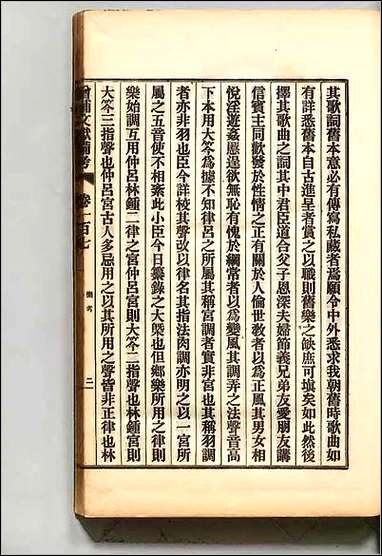 其歌詞舊本意必有傳寫私藏者爲願令中外悉求我朝舊時歌曲如
有詳悉舊本自古進呈者賞之以職則舊樂之缺庶可塡矣如此然後
擇其歌曲之詞其中君臣道合父子恩深夫婦節義兄弟友愛朋友講
信賓主同歡發於性情之正有關於人倫世敎者以爲正風其男女相
悅淫遊姦慝逞欲無恥有愧於綱常者以爲變風其調弄之法聲音高
下本用大笒爲據不知律呂之所屬其稱宮調者實非宮也其稱羽調
者亦非羽也臣今詳校其聲改以律名其指法肉調亦明之以一宮所
屬之五音使不相紊此小臣今日纂錄之大槩也但鄕樂所用之律則
樂始調互用仲呂林鍾二律之宮仲呂宮則大笒二指聲也林鍾宮則
大笒三指聲也仲呂宮古人多忌用之以其所用之聲皆非正律也林
增補文獻備考
卷一百七
樂考
二